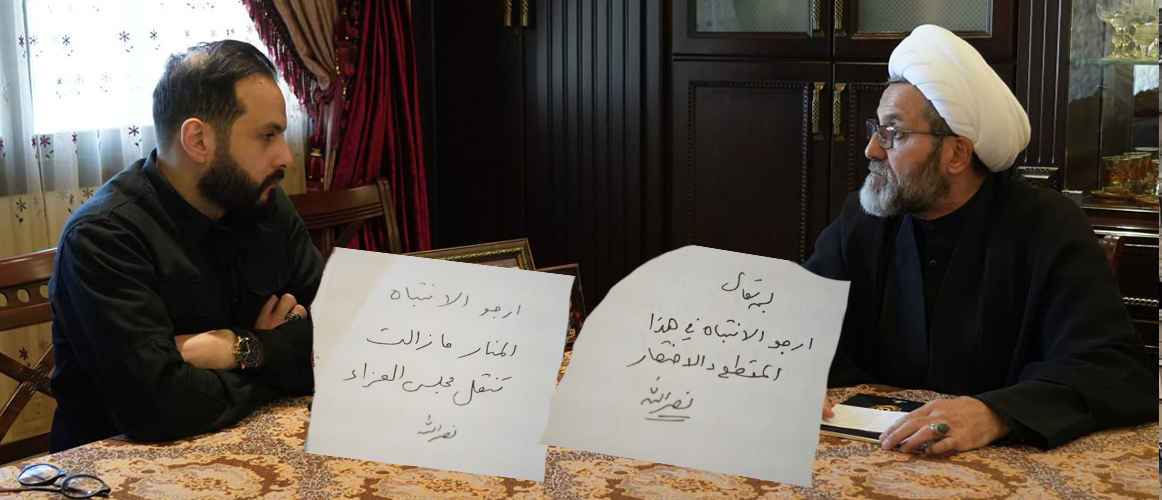 بسمه تعالى
ارجو الانتباه في هذا
المقطع والاختصار
نصرالله
ارجو الانتباه
المنار ما زالت
تنقل مجلس العزاء
نصرالله